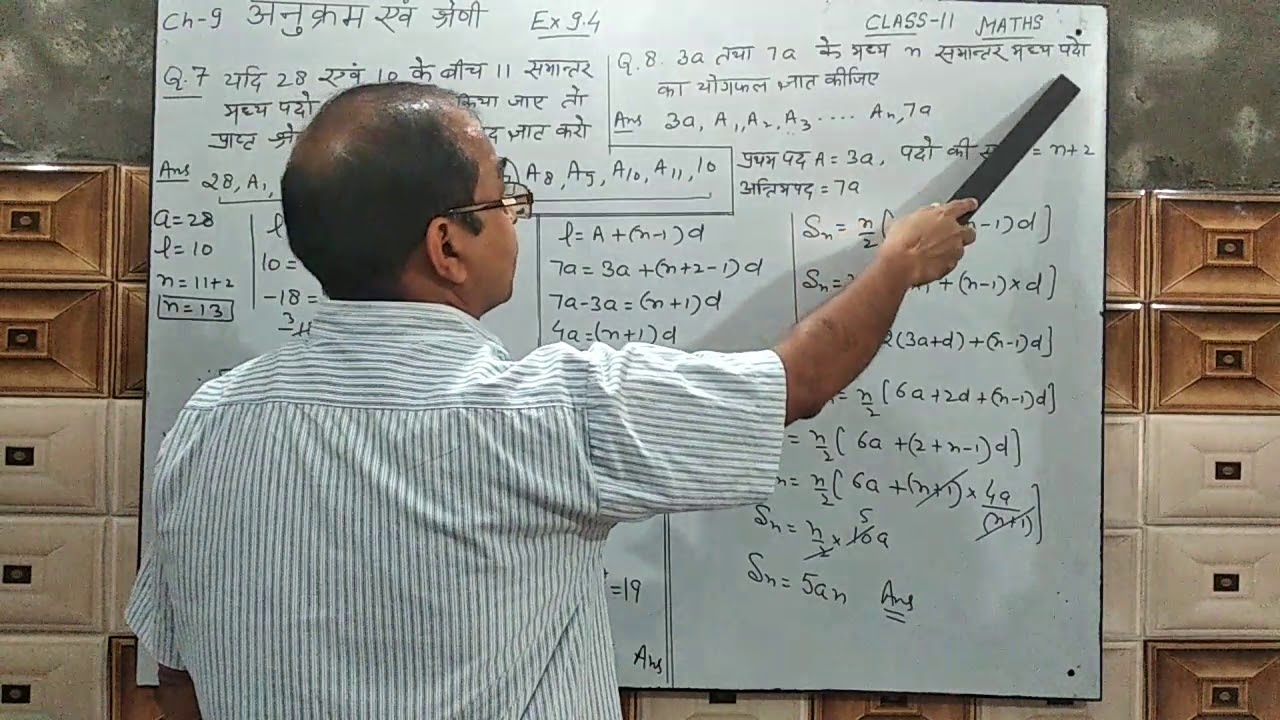 Ch-9 अनुक्रम एवं श्रेणी Ex 9.4
CLASS-11 MATHS
Q.7 यदि 28 एवं 10 के बीच 11 समान्तर
मध्य पदो किया जाए तो
प्राप्त ज्ञात करो
Ans 28, A1, A8, A9, A10, A11, 10
a=28
l=10
n=11+2
n=13
l
10=
-18=
3
=19
Ans
Q.8. 3a तथा 7a के मध्य n समान्तर मध्य पदो
का योगफल ज्ञात कीजिए
Ans 3a, A1, A2, A3 ..... An, 7a
प्रथम पद A = 3a, पदो की = n+2
अन्तिमपद = 7a
l = A+(n-1)d
7a = 3a+(n+2-1)d
7a-3a = (n+1)d
4a=(n+1)d
Sn = n/2[ n-1)d]
Sn= + (n-1)×d]
2(3a+d)+(n-1)d]
= n/2[6a+2d+(n-1)d]
= n/2[6a+(2+n-1)d]
n = n/2[6a+(n+1)×4a/(n+1)]
5
Sn = n/2 × 10a
Sn = 5an Ans